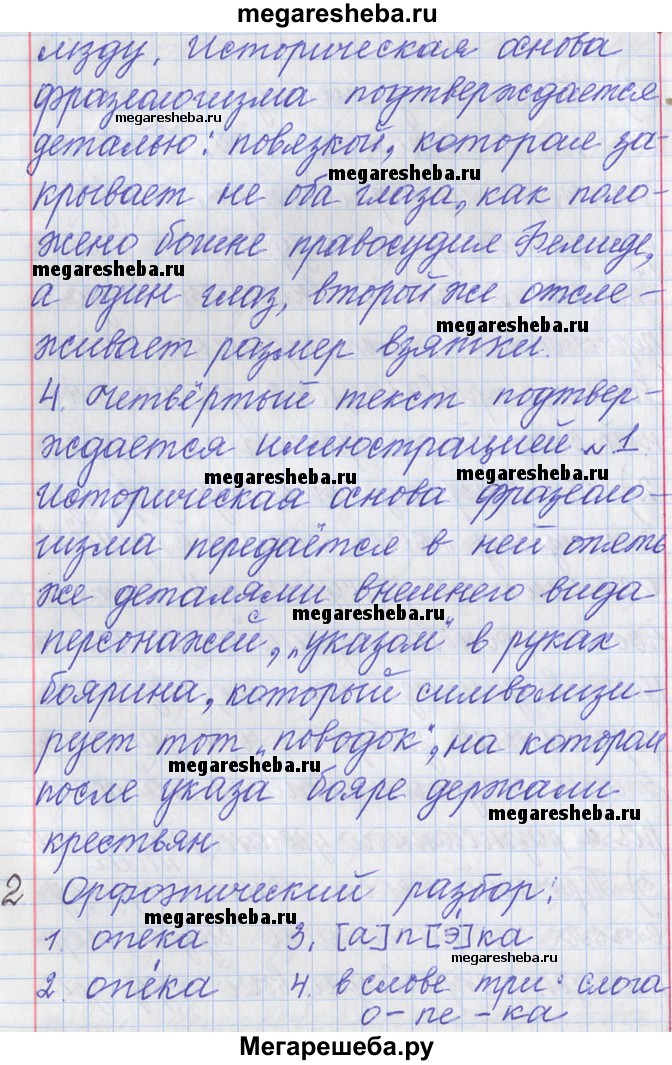 megaresheba.ru
мзду. Историческая основа
фразеологизма подтверждается
megaresheba.ru
деталью: повязкой, которая за-
megaresheba.ru
крывает не оба глаза, как поло-
жено богине правосудия Фемиде,
megaresheba.ru
а один глаз, второй же отсле-
megaresheba.ru
живает размер взятки.
4. Четвёртый текст подтвер-
ждается иллюстрацией №1.
megaresheba.ru megaresheba.ru
Историческая основа фразеоло-
гизма передаётся в ней опять
же деталями внешнего вида
megaresheba.ru
персонажей, „указом" в руках
боярина, который символизи-
рует тот „поводок", на котором
megaresheba.ru
после указа бояре держали
megaresheba.ru
крестьян
2 Орфоэпический разбор:
megaresheba.ru
1. опека 3. [а]п[э́]ка
megaresheba.ru
2. опе́ка 4. в слове три слога
о-пе-ка
Мегарешеба.ру